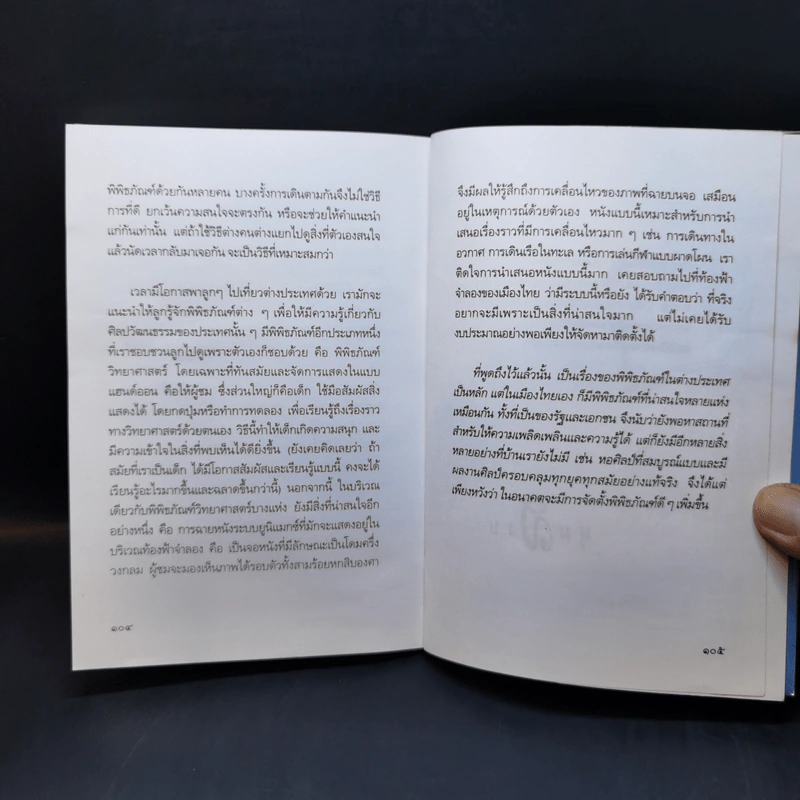 พิพิธภัณฑ์ด้วยกันหลายคน บางครั้งการเดินตามกันจึงไม่ใช่วิธี
การที่ดี ยกเว้นความสนใจจะตรงกัน หรือจะช่วยให้คำแนะนำ
แก่กันเท่านั้น แต่ถ้าใช้วิธีต่างคนต่างแยกไปดูสิ่งที่ตัวเองสนใจ
แล้วนัดเวลากลับมาเจอกัน จะเป็นวิธีที่เหมาะสมกว่า
เวลามีโอกาสพาลูกๆ ไปเที่ยวต่างประเทศด้วย เรามักจะ
แนะนำให้ลูกรู้จักพิพิธภัณฑ์ต่าง ๆเพื่อให้มีความรู้เกี่ยวกับ
ศิลปวัฒนธรรมของประเทศนั้น ๆ มีพิพิธภัณฑ์อีกประเภทหนึ่ง
ที่เราชอบชวนลูกไปดูเพราะตัวเองก็ชอบด้วย คือ พิพิธภัณฑ์
วิทยาศาสตร์ โดยเฉพาะที่ทันสมัยและจัดการแสดงในแบบ
แฮนด์ออน คือให้ผู้ชม ซึ่งส่วนใหญ่ก็คือเด็ก ใช้มือสัมผัสสิ่ง
แสดงได้ โดยกดปุ่มหรือทำการทดลอง เพื่อเรียนรู้ถึงเรื่องราว
ทางวิทยาศาสตร์ด้วยตนเอง วิธีนี้ทำให้เด็กเกิดความสนุก และ
มีความเข้าใจในสิ่งที่พบเห็นได้ดียิ่งขึ้น (ยังเคยคิดเลยว่า ถ้า
สมัยที่เราเป็นเด็ก ได้มีโอกาสสัมผัสและเรียนรู้แบบนี้ คงจะได้
เรียนรู้อะไรมากขึ้นและฉลาดขึ้นกว่านี้) นอกจากนี้ ในบริเวณ
เดียวกับพิพิธภัณฑ์วิทยาศาสตร์บางแห่ง ยังมีสิ่งที่น่าสนใจอีก
อย่างหนึ่ง คือ การฉายหนังระบบยูนิแมกซ์ที่มักจะแสดงอยู่ใน
บริเวณท้องฟ้าจำลอง คือ เป็นจอหนังที่มีลักษณะเป็นโดมครึ่ง
วงกลม ผู้ชมจะมองเห็นภาพได้รอบตัวทั้งสามร้อยหกสิบองศา
๑๐๔
จึงมีผลให้รู้สึกถึงการเคลื่อนไหวของภาพที่ฉายบนจอ เสมือน
อยู่ในเหตุการณ์ด้วยตัวเอง หนังแบบนี้เหมาะสำหรับการนำ
เสนอเรื่องราวที่มีการเคลื่อนไหวมาก ๆ เช่น การเดินทางใน
อวกาศ การเดินเรือในทะเล หรือการเล่นกีฬาแบบผาดโผน เรา
ติดใจการนำเสนอหนังแบบนี้มาก เคยสอบถามไปที่ท้องฟ้า
จำลองของเมืองไทย ว่ามีระบบนี้หรือยัง ได้รับคำตอบว่า ที่จริง
อยากจะมีเพราะเป็นสิ่งที่น่าสนใจมาก แต่ไม่เคยได้รับ
งบประมาณอย่างพอเพียงให้จัดหามาติดตั้งได้
ที่พูดถึงไว้แล้วนั้น เป็นเรื่องของพิพิธภัณฑ์ในต่างประเทศ
เป็นหลัก แต่ในเมืองไทยเอง ก็มีพิพิธภัณฑ์ที่น่าสนใจหลายแห่ง
เหมือนกัน ทั้งที่เป็นของรัฐและเอกชน จึงนับว่ายังพอหาสถานที่
สำหรับให้ความเพลิดเพลินและความรู้ได้ แต่ก็ยังมีอีกหลายสิ่ง
หลายอย่างที่บ้านเรายังไม่มี เช่น หอศิลป์ที่สมบูรณ์แบบและมี
ผลงานศิลป์ครอบคลุมทุกยุคทุกสมัยอย่างแท้จริง จึงได้แต่
เพียงหวังว่า ในอนาคตจะมีการจัดตั้งพิพิธภัณฑ์ดี ๆ เพิ่มขึ้น
๑๐๕